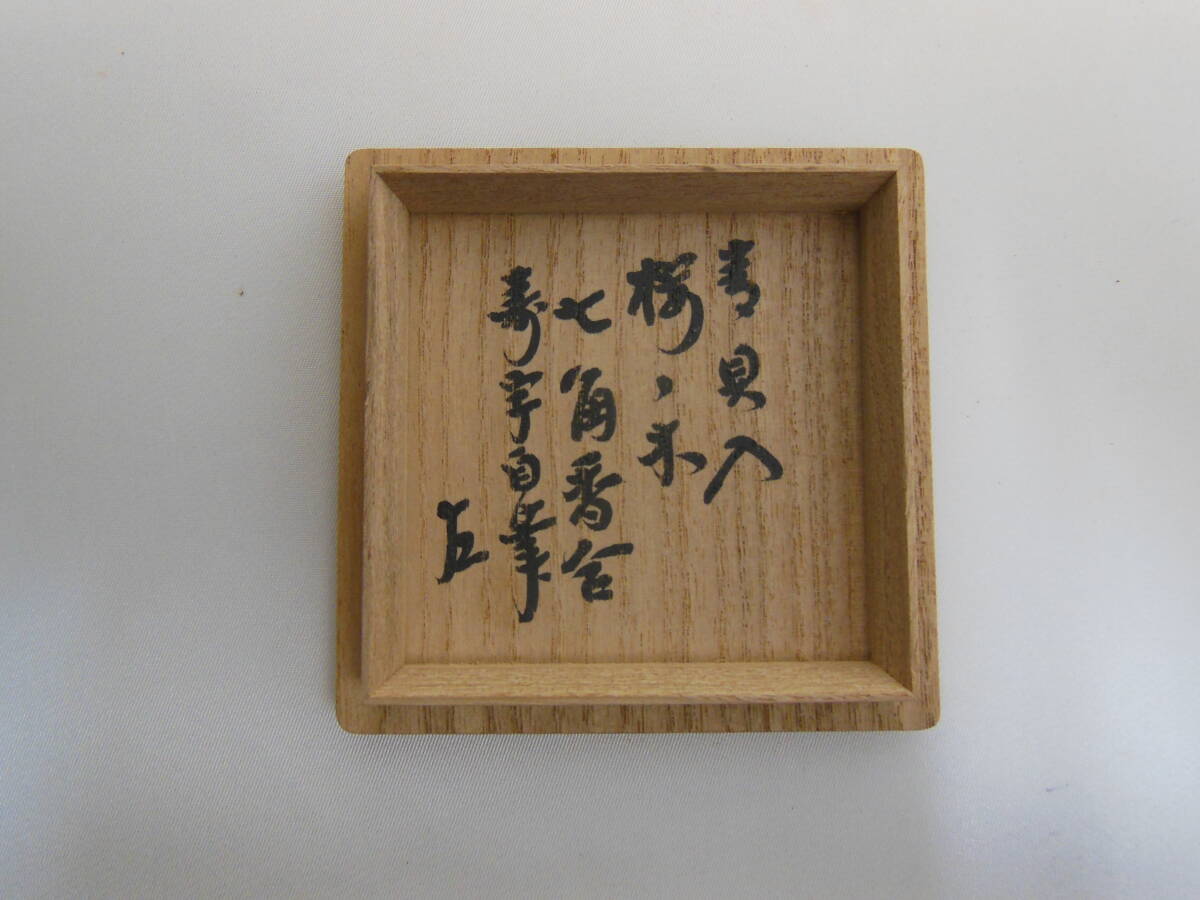 青貝入
桜ノ木
七角香合
寿字自筆